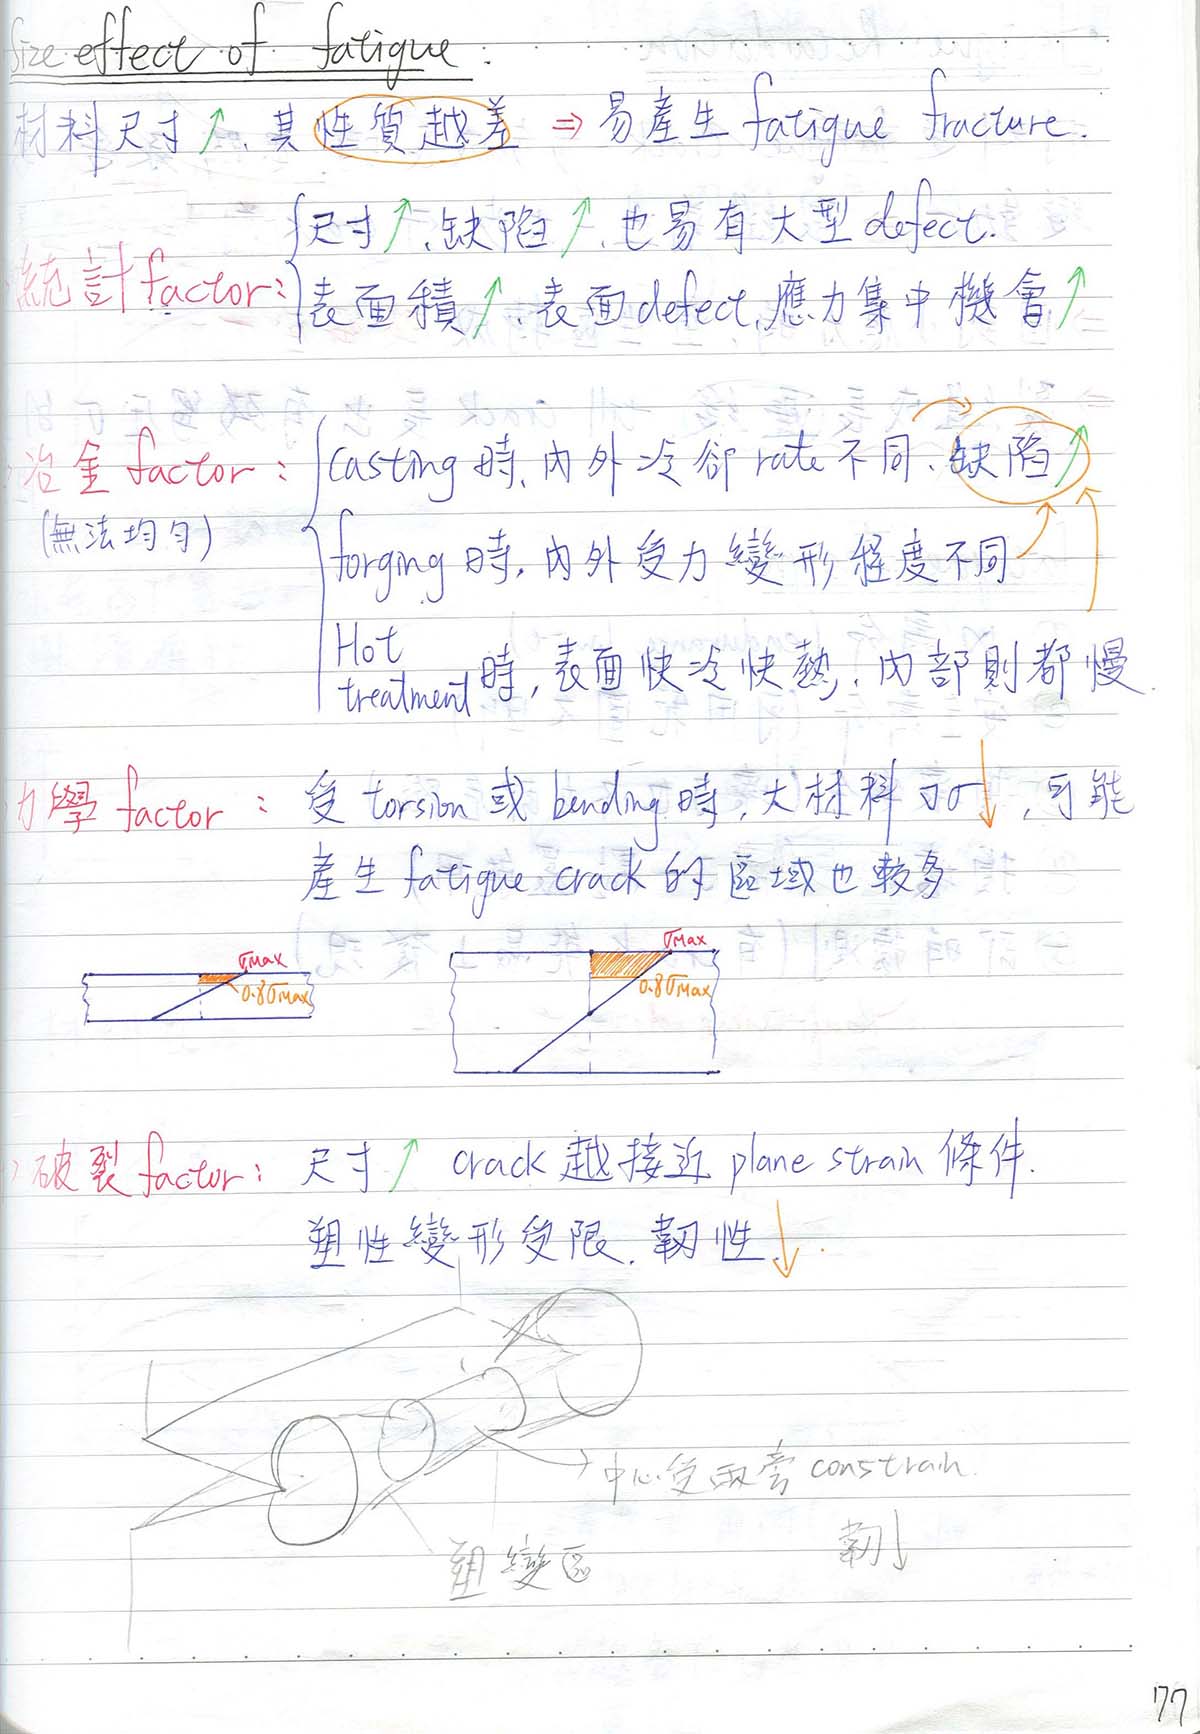 size effect of fatigue.
材料尺寸↑、其性質越差 ⇒ 易產生 fatigue fracture.
尺寸↑、缺陷↑、也易有大型 defect.
統計 factor:
表面積↑、表面 defect, 應力集中機會↑
冶金 factor: casting 時, 內外冷卻 rate 不同、缺陷↑
(無法均勻)
forging 時, 內外受力變形程度不同
Hot
treatment 時, 表面快冷快熱, 內部則都慢.
力學 factor: 受 torsion 或 bending 時, 大材料 ▽σ↓, 可能
產生 fatigue crack 的區域也較多
σMax
0.8σMax
σMax
0.8σMax
破裂 factor: 尺寸↑ crack 越接近 plane strain 條件.
塑性變形受限. 韌性↓.
→中心受兩旁 constrain.
韌↓
塑變區
77